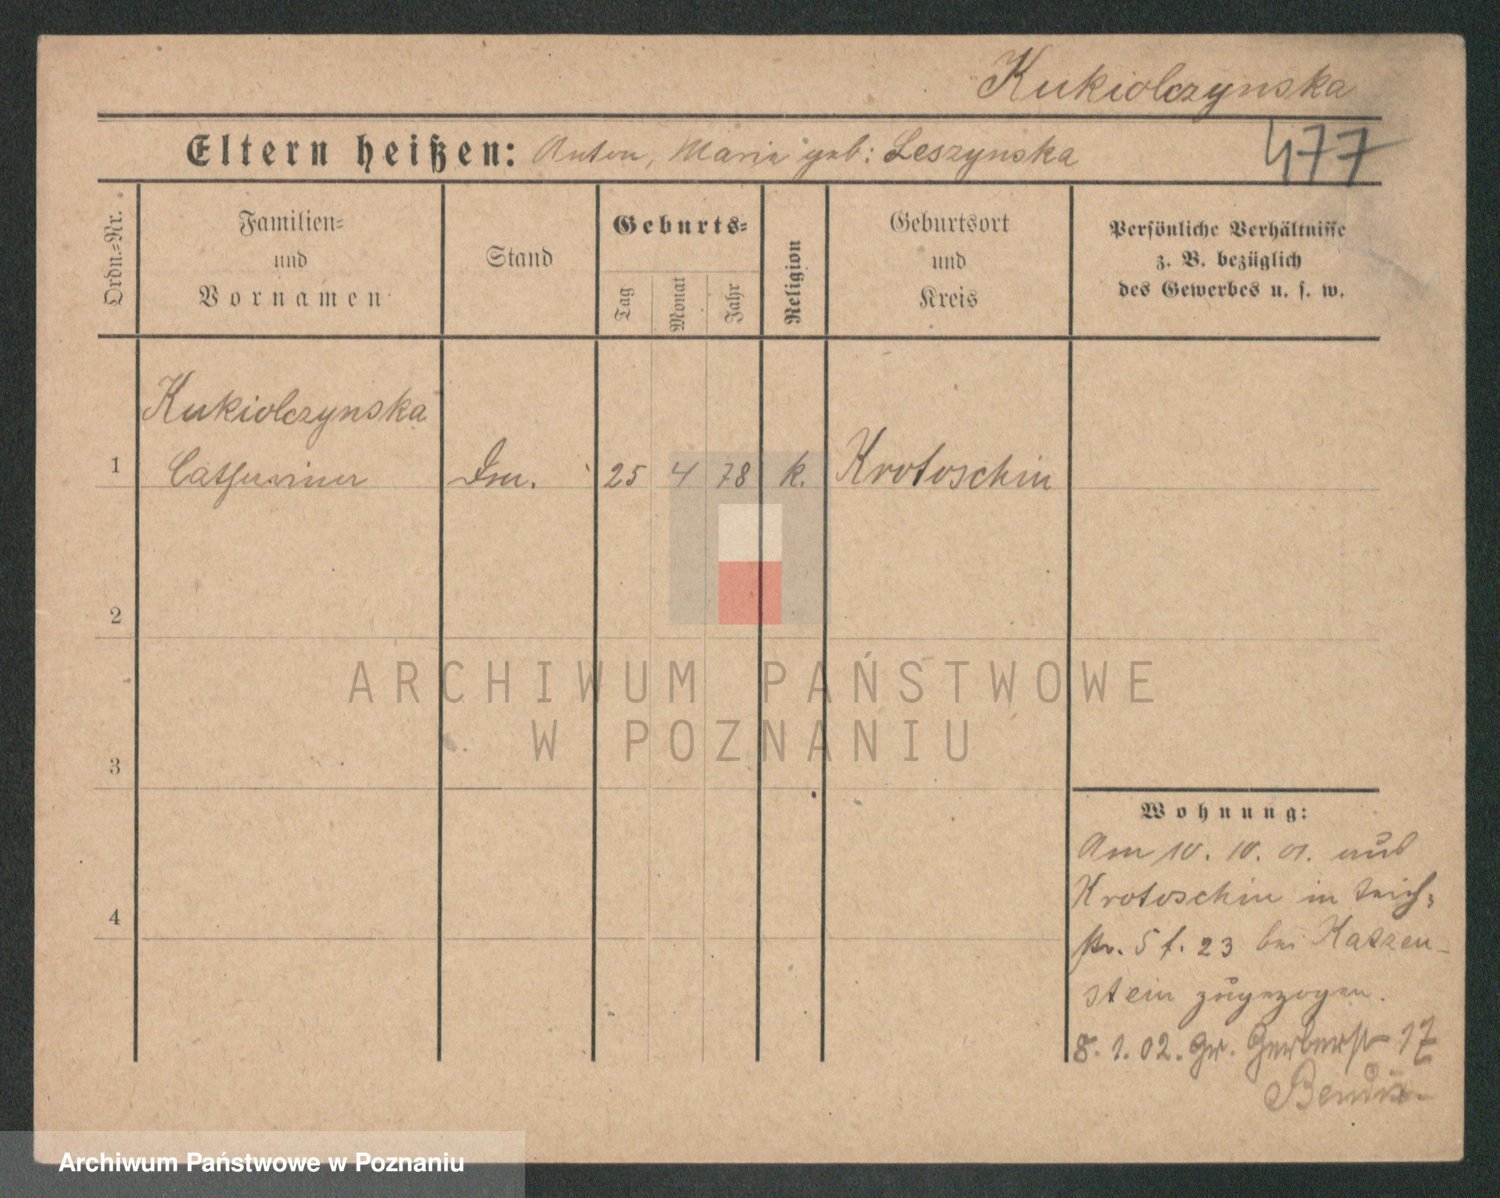 Kukiolczynska
477
Eltern heißen: Anton, Maria geb: Leszynska
Ordn.-Nr.
Familien-
und
Vornamen
Stand
Geburts-
Tag
Monat
Jahr
Religion
Geburtsort
und
Kreis
Persönliche Verhältnisse
z. B. bezüglich
des Gewerbes u. s. w.
Kukiolczynska
1 Catharina 25 4 78 k. Krotoschin
2
3
4
ARCHIWUM PAŃSTWOWE
W POZNANIU
Wohnung:
Am 10. 10. 01. aus
Krotoschin in Teich-
str. 5 f. 23 bei Katzen-
stein zugezogen.
8. 1. 02. Gr. Gerberstr 17
Bendix
Archiwum Państwowe w Poznaniu